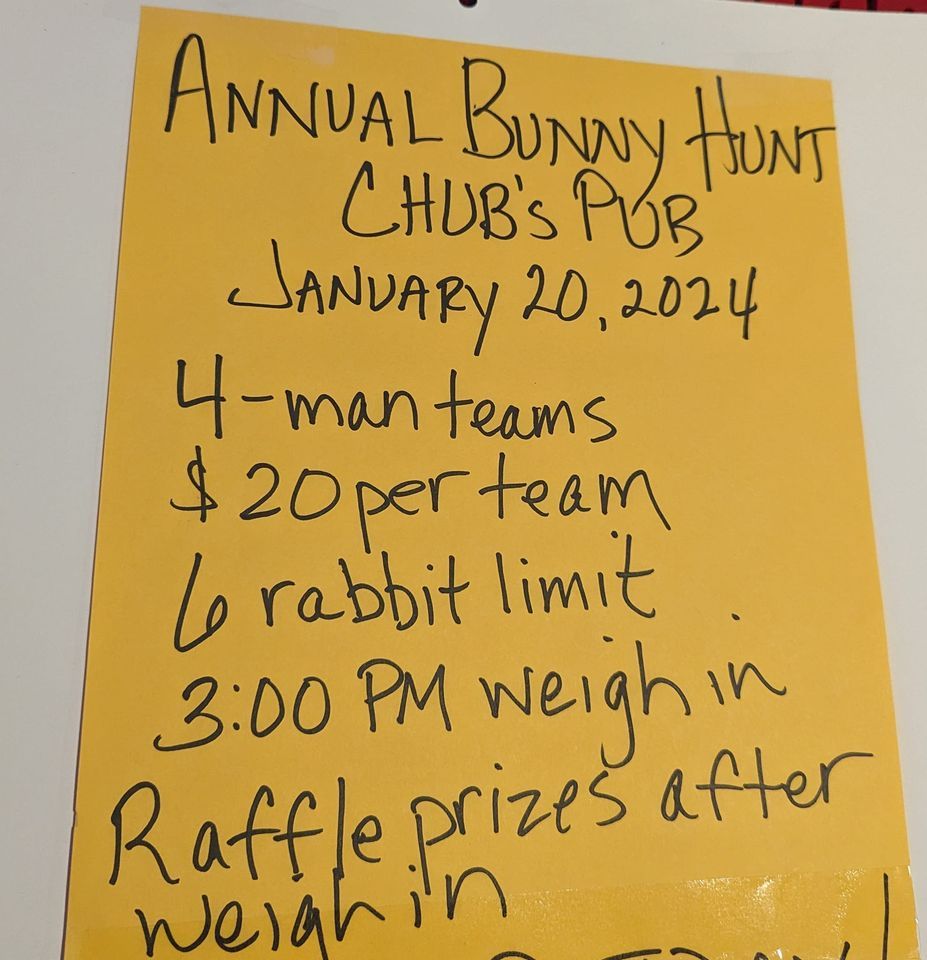 ANNUAL BUNNY HUNT
CHUB'S PUB
JANUARY 20, 2024
4-man teams
$20 per team
6 rabbit limit
3:00 PM weigh in
Raffle prizes after
weigh in